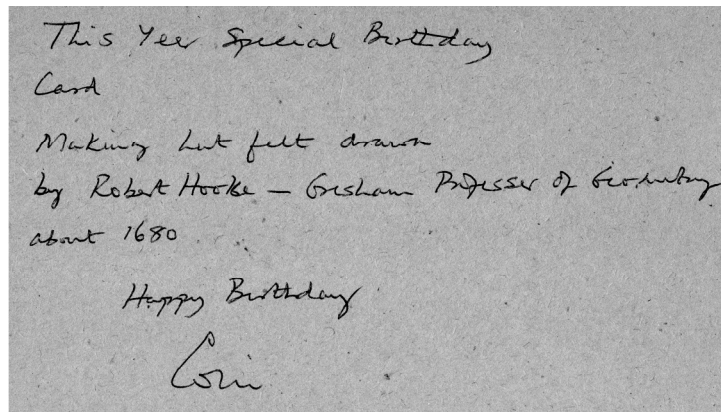 This Yeer Special Birthday
Card
Making hat felt drawn
by Robert Hooke — Gresham Professer of Geometry
about 1680
Happy Birthday
Colin